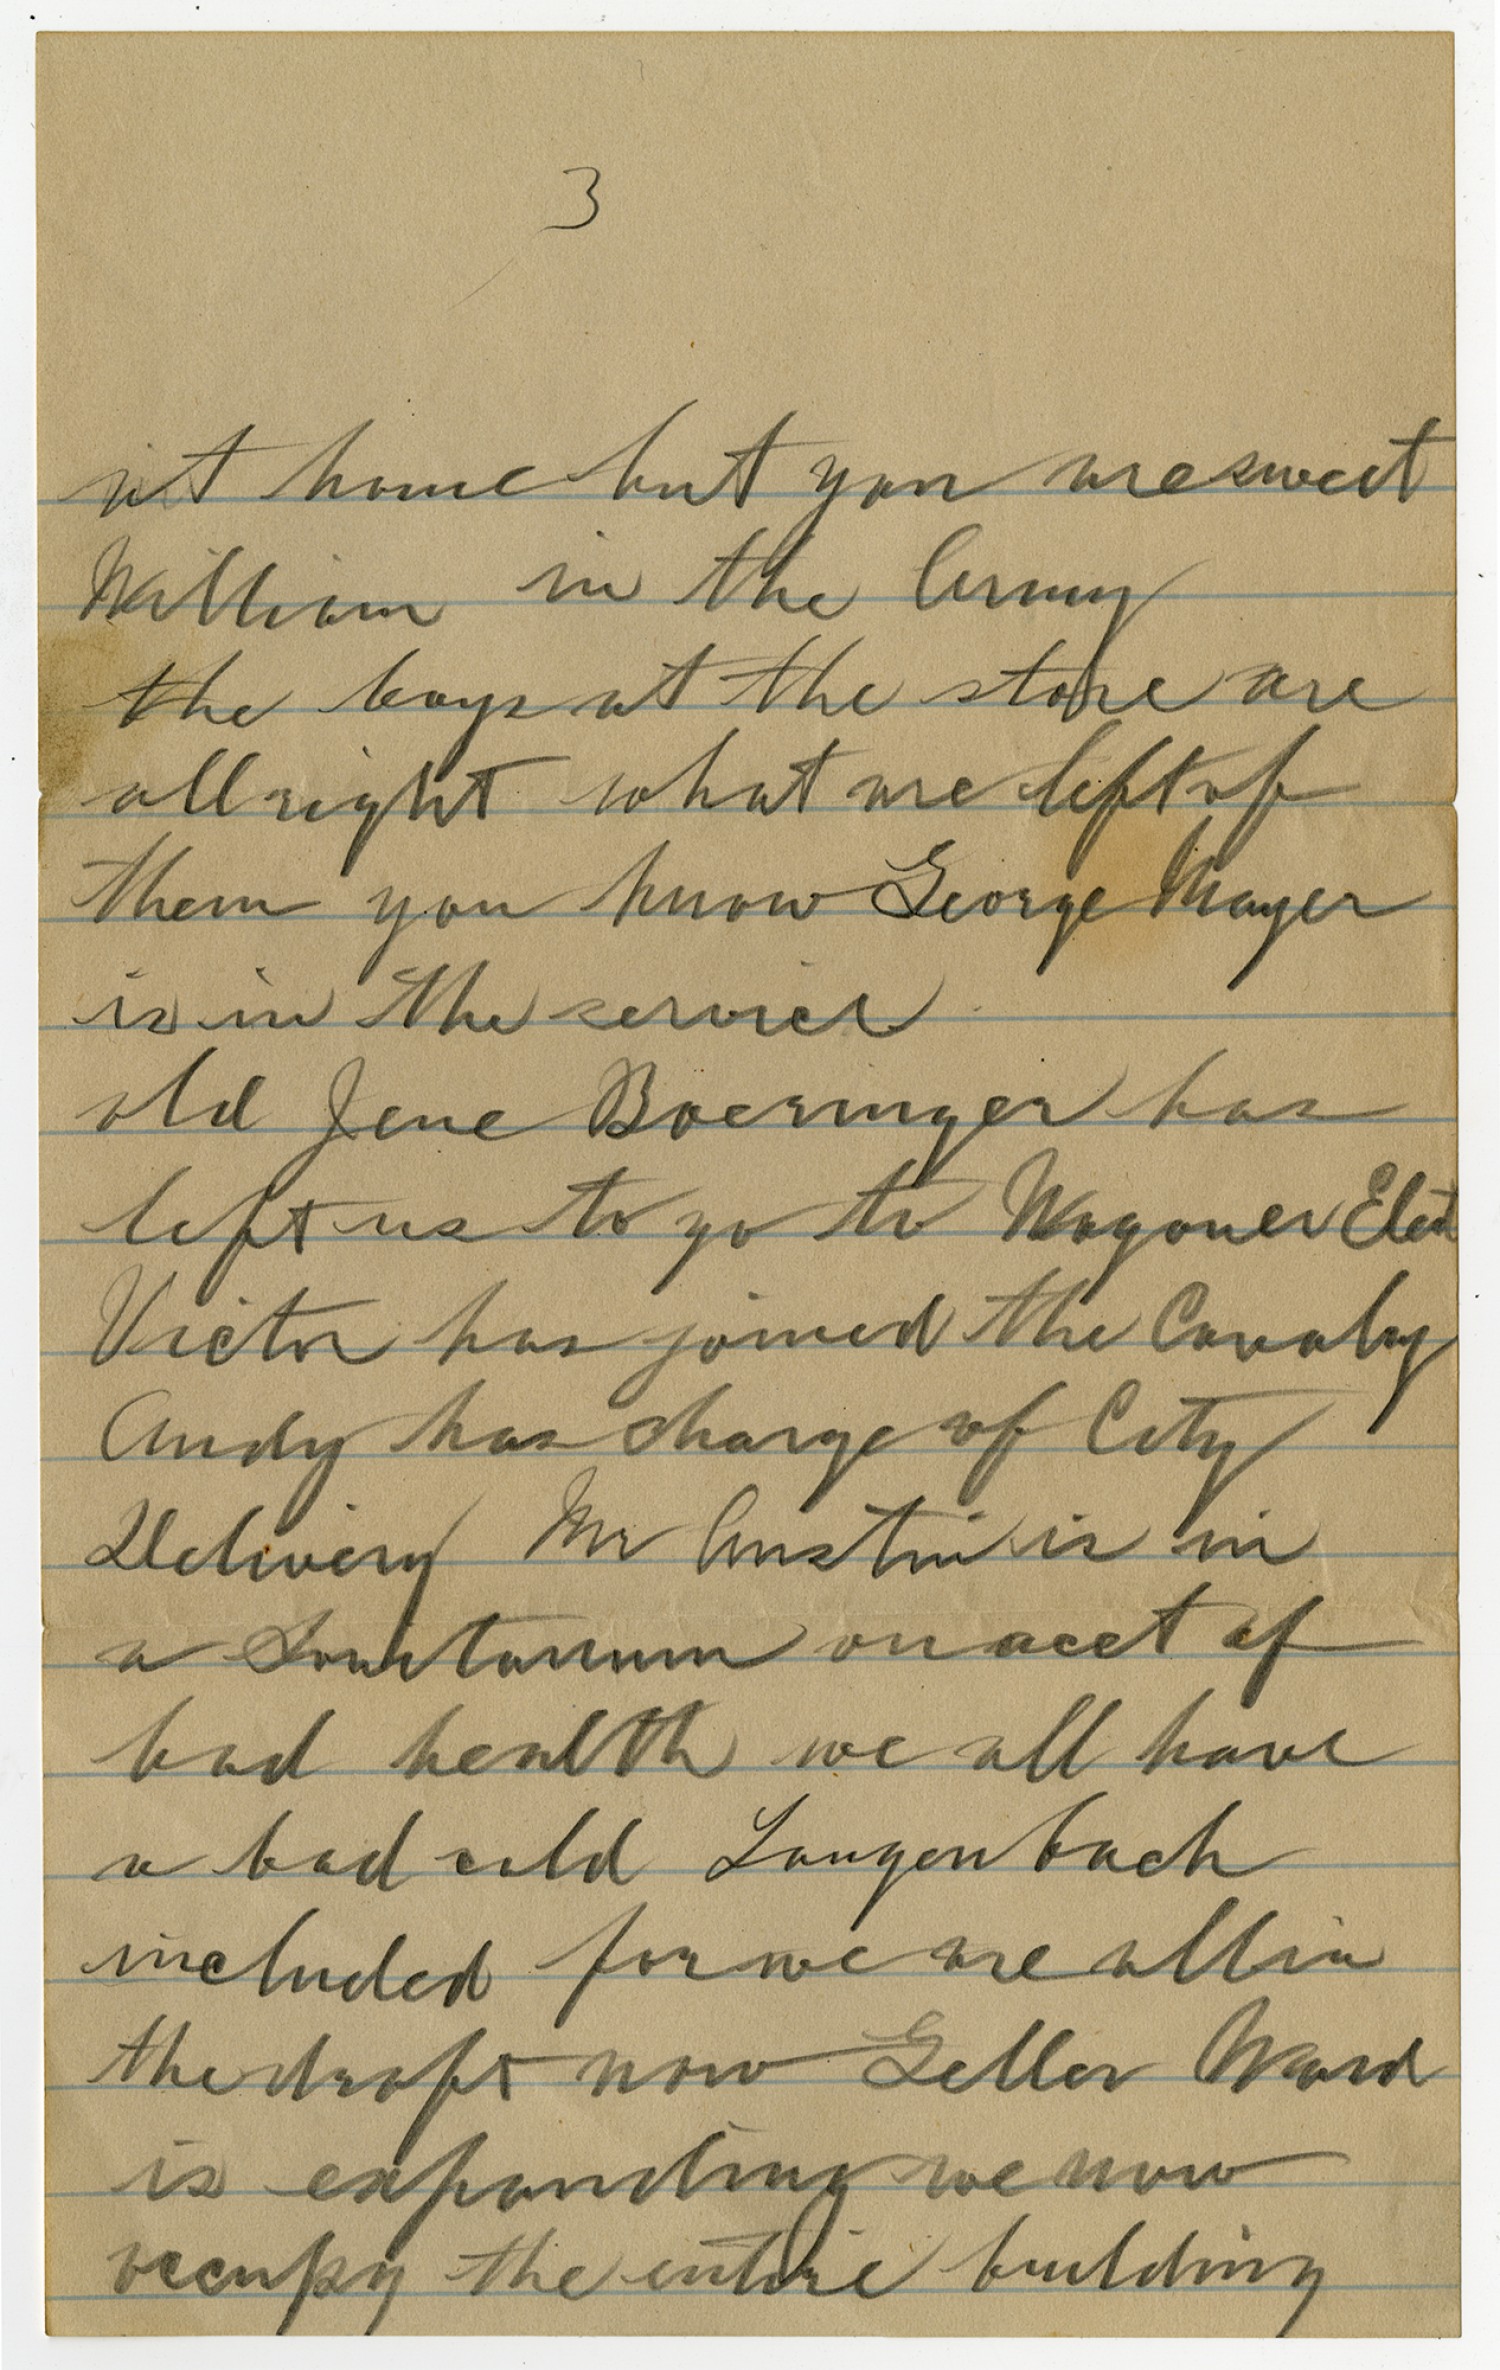 3
at home but you are sweet
William in the Army
the boys at the store are
all right what are left of
them you know George Mayer
is in the service
old Jene Boeringer has
left us to go to Wagoner Elect
Victor has joined the Cavalry
Andy has charge of City
Delivery Mr Austin is in
a Sanitarium on acct of
bad health we all have
a bad cold Langenbach
included for we are all in
the draft now Geller Ward
is expanding we now
occupy the entire building